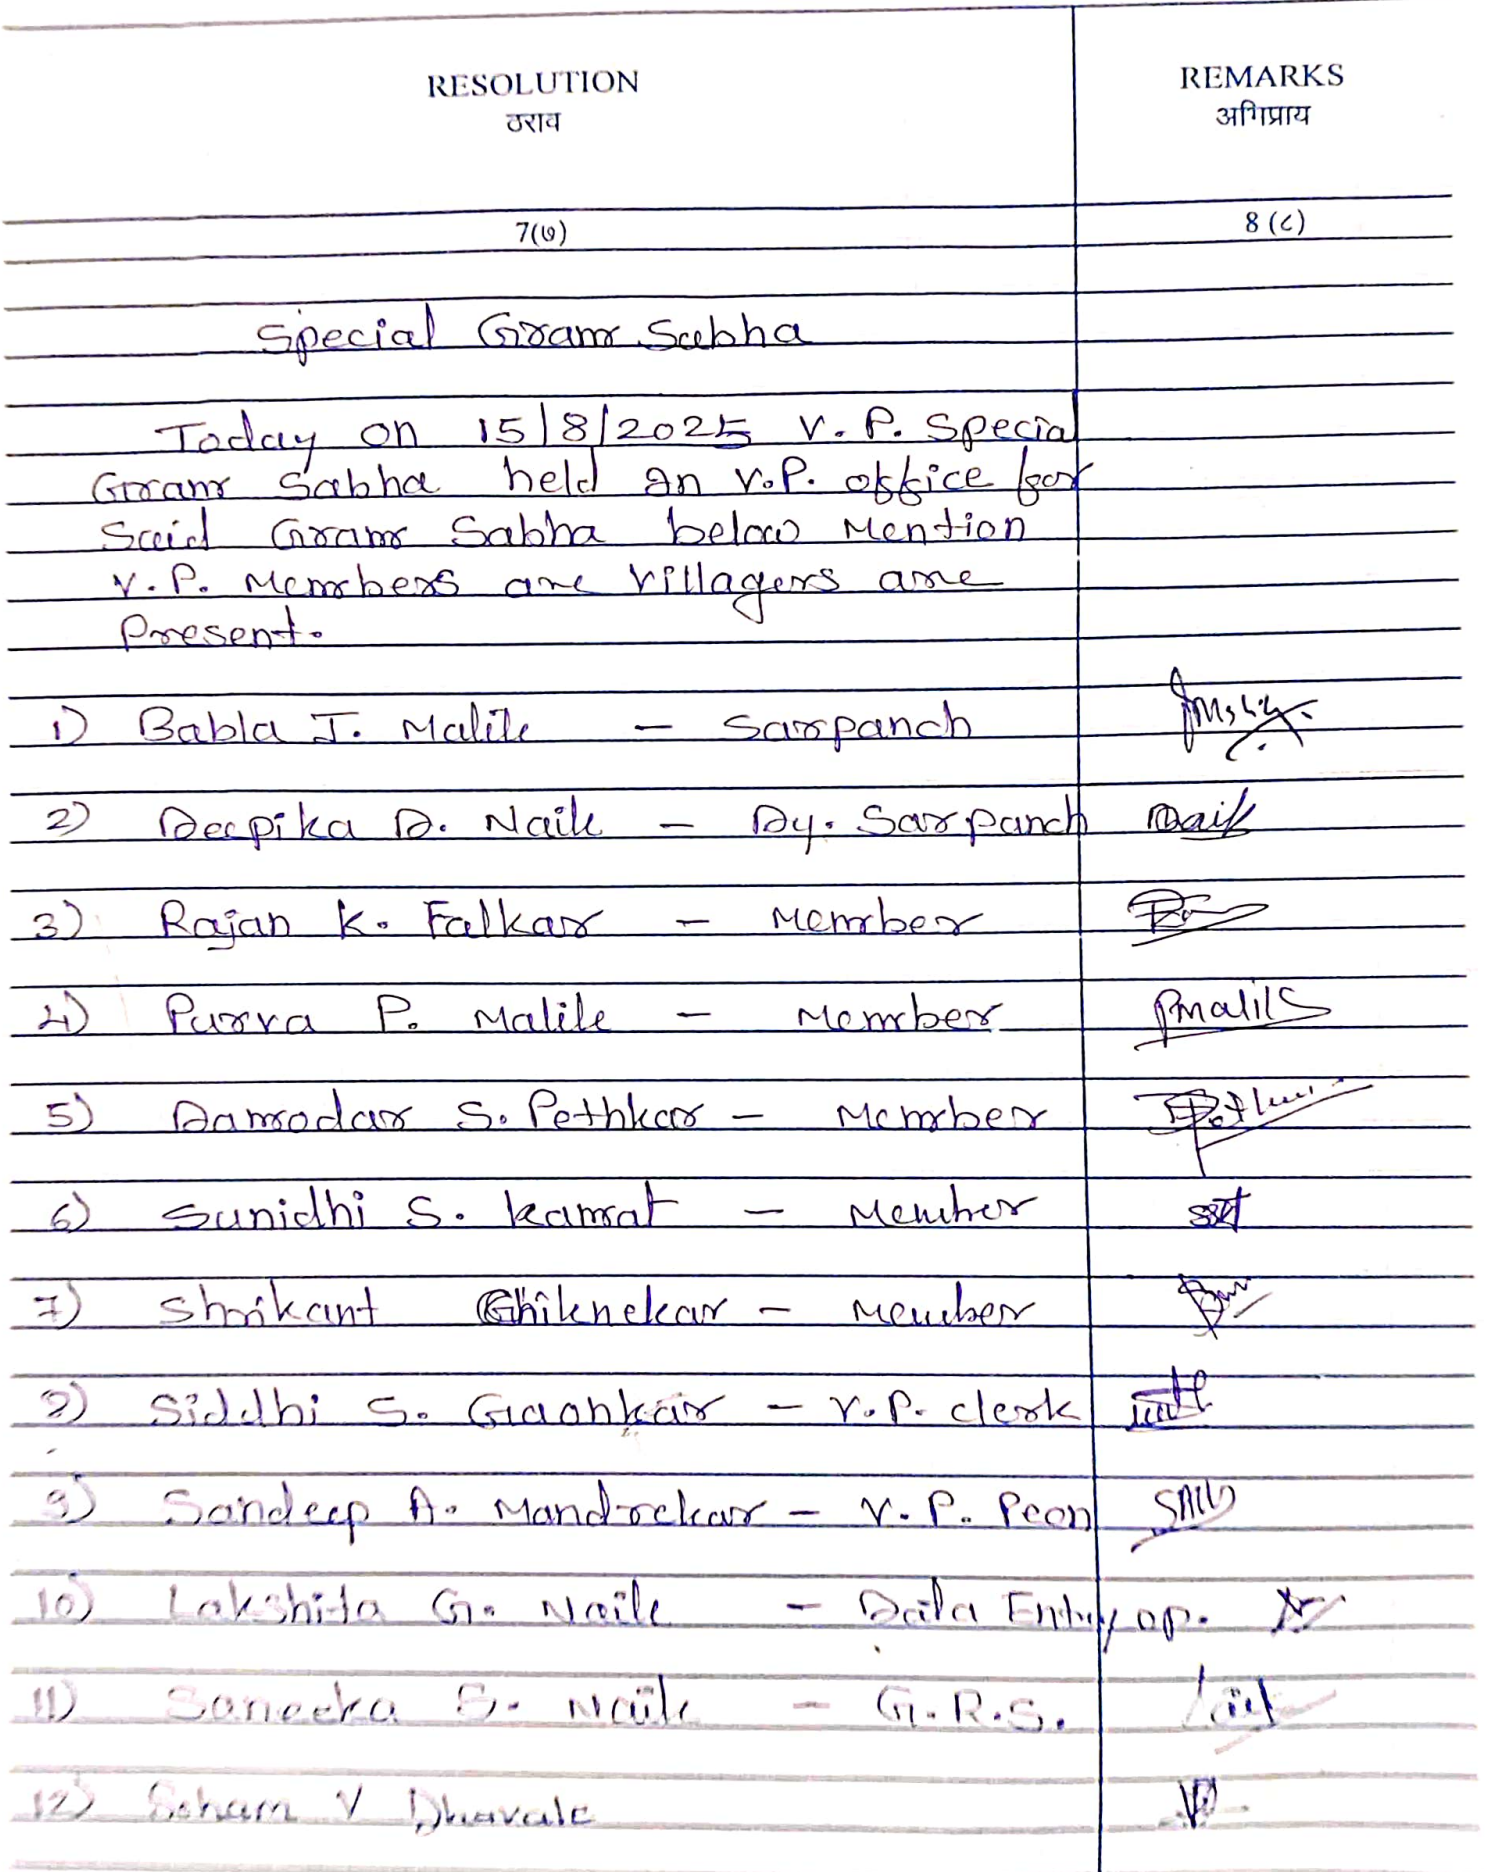 RESOLUTION
ठराव
REMARKS
अभिप्राय
7(७)
8 (८)
Special Gram Sabha
Today on 15/8/2025 V. P. Special
Gram Sabha held In V.P. office for
Said Gram Sabha below Mention
V. P. Members are villagers are
Present.
1) Babla J. Malik - Sarpanch
2) Deepika D. Naik - Dy. Sarpanch Naik
3) Rajan K. Falkar - Member
4) Purva P. Malik - Member Pmalik
5) Damodar S. Pethkar - Member
6) Sunidhi S. Kamat - Member
7) Shrikant Chiknekar - Member
8) Siddhi S. Gaonkar - V.P. clerk
9) Sandeep A. Mandrekar - V. P. Peon
10) Lakshita G. Naik - Data Entry op.
11) Saneeka S. Naik - G.R.S.
12) Soham V Dhavale